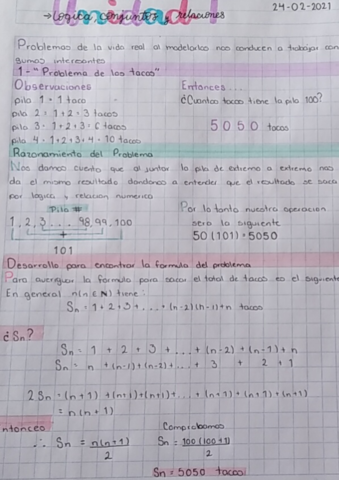 Unidad 1
24-02-2021
→ Logica, conjuntos y relaciones
Problemas de la vida real al modelarlos nos conducen a trabajar con
sumas interesantes
1- "Problema de los tacos"
Observaciones
pila 1 = 1 taco
pila 2 = 1+2 = 3 tacos
pila 3 = 1+2+3 = 6 tacos
pila 4 = 1+2+3+4 = 10 tacos
Entonces...
¿Cuantos tacos tiene la pila 100?
5050 tacos
Razonamiento del Problema
Nos damos cuenta que al juntar la pila de extremo a extremo nos
da el mismo resultado dandonos a entender que el resultado se saca
por logica y relacion numerica
Pila #
1, 2, 3 ... 98, 99, 100
+
101
Por lo tanto nuestra operacion
sera la siguiente
50 (101) = 5050
Desarrollo para encontrar la formula del problema
Para averiguar la formula para sacar el total de tacos es el siguiente
En general n(n ∈ N) tiene:
Sn = 1+2+3+...+(n-2)(n-1)+n tacos
¿Sn?
Sn = 1 + 2 + 3 + ... + (n-2) + (n-1) + n
Sn = n + (n-1) + (n-2) + ... + 3 + 2 + 1
2Sn = (n+1) + (n+1) + (n+1) + ... + (n+1) + (n+1) + (n+1)
= n(n+1)
Entonces
∴ Sn = n(n+1)
2
Comprobamos
Sn = 100(100+1)
2
Sn = 5050 tacos